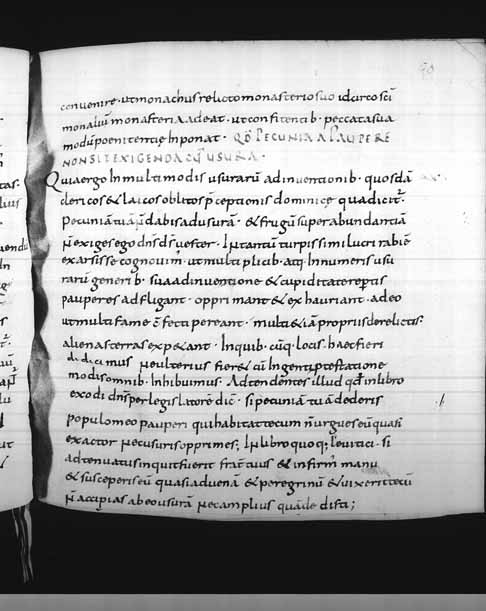 90
convenire. ut monachus relicto monasterio suo idcirco sci
monalium monasteria adeat. ut confitentib. peccata sua
modum poenitentie inponat. QD PECUNIA A PAUPERE
NON SIT EXIGENDA USURA.
Quia ergo in multimodis usuraru adinventionib. quosda
clericos & laicos oblitos pceptionis dominice qua dicit.
Pecunia tua n dabis ad usura. & frugu superabundantia
n exiges ego dns ds vester. In tantu turpissimi lucri rabie
exarsisse cognovim. ut multiplicib. atq. innumeris usu
raru generib. sua adinventione & cupiditate reptis
pauperes adfligant. opprimant & exhauriant. adeo
ut multi fame cfecti pereant. multi & ia propriis derelictis.
alienas terras expetant. In quib. cuq. locis. haec fieri
didicimus ne ulterius fier& cu ingenti ptestatione
modis omnib. inhibuimus. Adtendentes illud qd in libro
exodi dns per legislatore dic. si pecunia tua dederis
populo meo pauperi qui habitat tecum n urgues eu quasi
exactor nec usuris opprimes; In libro quoq; levitici. si
adtenuatus inquit fuerit frat tuus & infirm manu
& susceperis eu quasi advena & peregrinu & vixerit tecu
n accipias ab eo usura nec amplius qua dedisti;